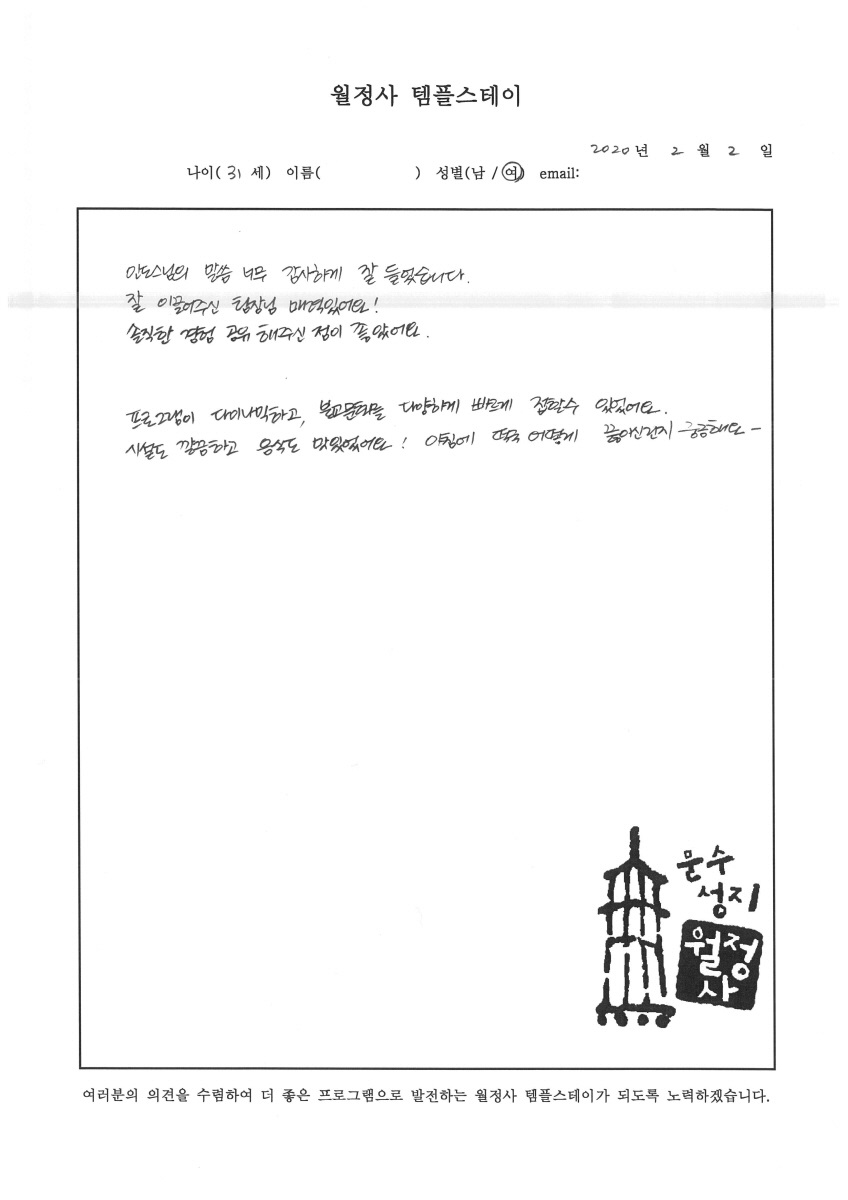 월정사 템플스테이
2020년 2 월 2 일
나이( 31 세) 이름( ) 성별(남 / 여) email:
인도스님의 말씀 너무 감사하게 잘 들었습니다.
잘 이끌어주신 팀장님 매력있어요!
솔직한 경험 공유 해주신 점이 좋았어요.
프로그램이 다이나믹하고, 불교문화를 다양하게 빠르게 접할수 있었어요.
시설도 깔끔하고 음식도 맛있었어요! 아침에 떡국 어떻게 끓이신건지 궁금해요-
문수
성지
월정
사
여러분의 의견을 수렴하여 더 좋은 프로그램으로 발전하는 월정사 템플스테이가 되도록 노력하겠습니다.